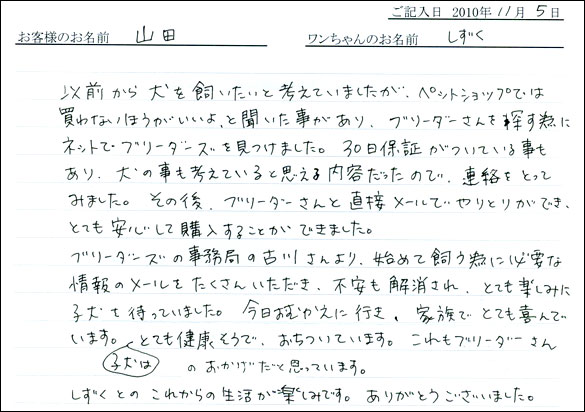 ご記入日 2010年11月5日
お客様のお名前 山田 ワンちゃんのお名前 しずく
以前から犬を飼いたいと考えていましたが、ペットショップでは
買わないほうがいいよ、と聞いた事があり、ブリーダーさんを探す為に
ネットでブリーダーズを見つけました。30日保証がついている事も
あり、犬の事も考えていると思える内容だったので、連絡をとって
みました。その後、ブリーダーさんと直接メールでやりとりができ、
とても安心して購入することができました。
ブリーダーズの事務局の古川さんより、始めて飼う為に必要な
情報のメールをたくさんいただき、不安も解消され、とても楽しみに
子犬を待っていました。今日おむかえに行き、家族でとても喜んで
います。とても健康そうで、おちついています。これもブリーダーさん
子犬は のおかげだと思っています。
しずくとのこれからの生活が楽しみです。ありがとうございました。